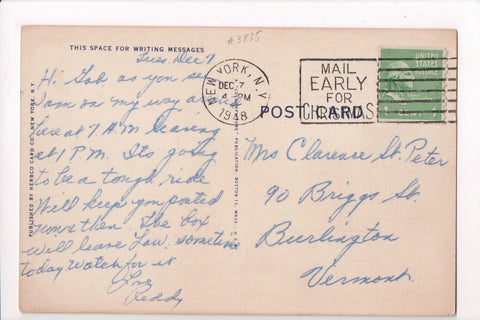 #3835
THIS SPACE FOR WRITING MESSAGES
Tues. Dec 7
Hi Gab, as you see
I am on my way
here at 7 A.M. leaving
at 1 P.M. Its going
to be a tough ride
Will keep you posted
now & then. The box
will leave Law. sometime
today Watch for it
Love
Reddy
PUBLISHED BY HERBCO CARD CO., NEW YORK, N.Y.
NEW YORK, N.Y.
DEC 7
4 PM
1948
MAIL
EARLY
FOR
CHRISTMAS
UNITED
STATES
POSTAGE
1 CENT
POST CARD
PUBLICATION, BOSTON 15, MASS., U.S.A.
Mrs Clarence St. Peter
90 Briggs St.
Burlington
Vermont